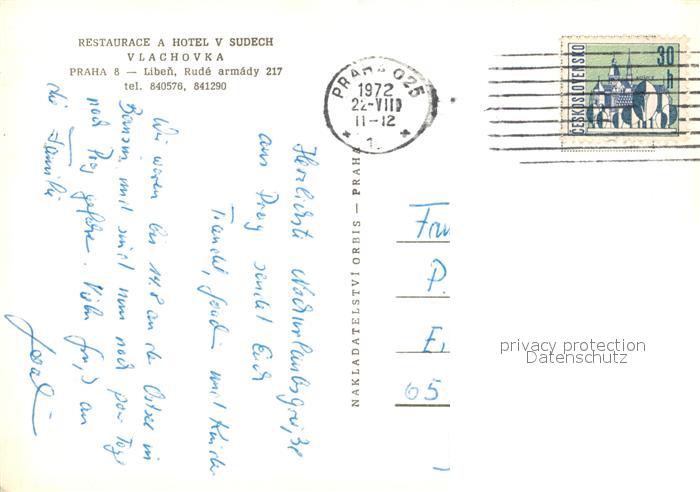 RESTAURACE A HOTEL V SUDECH
VLACHOVKA
PRAHA 8 — Libeň, Rudé armády 217
tel. 840576, 841290
PRAHA 025
1972
22-VIII
11-12
* 1 *
ČESKOSLOVENSKO
30 h
NAKLADATELSTVÍ ORBIS — PRAHA
Herzlichste Nachurlaubsgrüße
aus Prag sendet Euch
mit Kinder
Wir waren bis 14.8 an der Ostsee in
Bansin und sind nun noch paar Tage
nach Prag gefahren. Viele Grüße an
die Familie
P.
05
privacy protection
Datenschutz